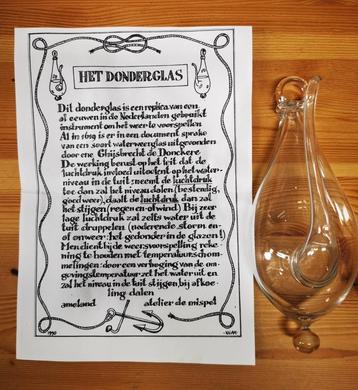 HET DONDERGLAS
Dit donderglas is een replica van een
al eeuwen in de Nederlanden gebruikt
instrument om het weer te voorspellen
Al in 1619 is er in een document sprake
van een soort waterweerglas uitgevonden
door ene Ghijsbrecht de Donckere.
De werking berust op het feit dat de
luchtdruk invloed uitoefent op het water-
niveau in de tuit: neemt de luchtdruk
toe dan zal het niveau dalen (bestendig,
goed weer), daalt de luchtdruk dan zal
het stijgen (regen en of wind) Bij zeer
lage luchtdruk zal zelfs water uit de
tuit druppelen (naderende storm en-
of onweer: het gedonder in de glazen!)
Men dient bij de weersvoorspelling reke-
ning te houden met temperatuurschom-
melingen: door een verhoging van de om-
gevingstemperatuur zet het water uit en
zal het niveau in de tuit stijgen, bij afkoe-
ling dalen
ameland atelier de mispel
1990